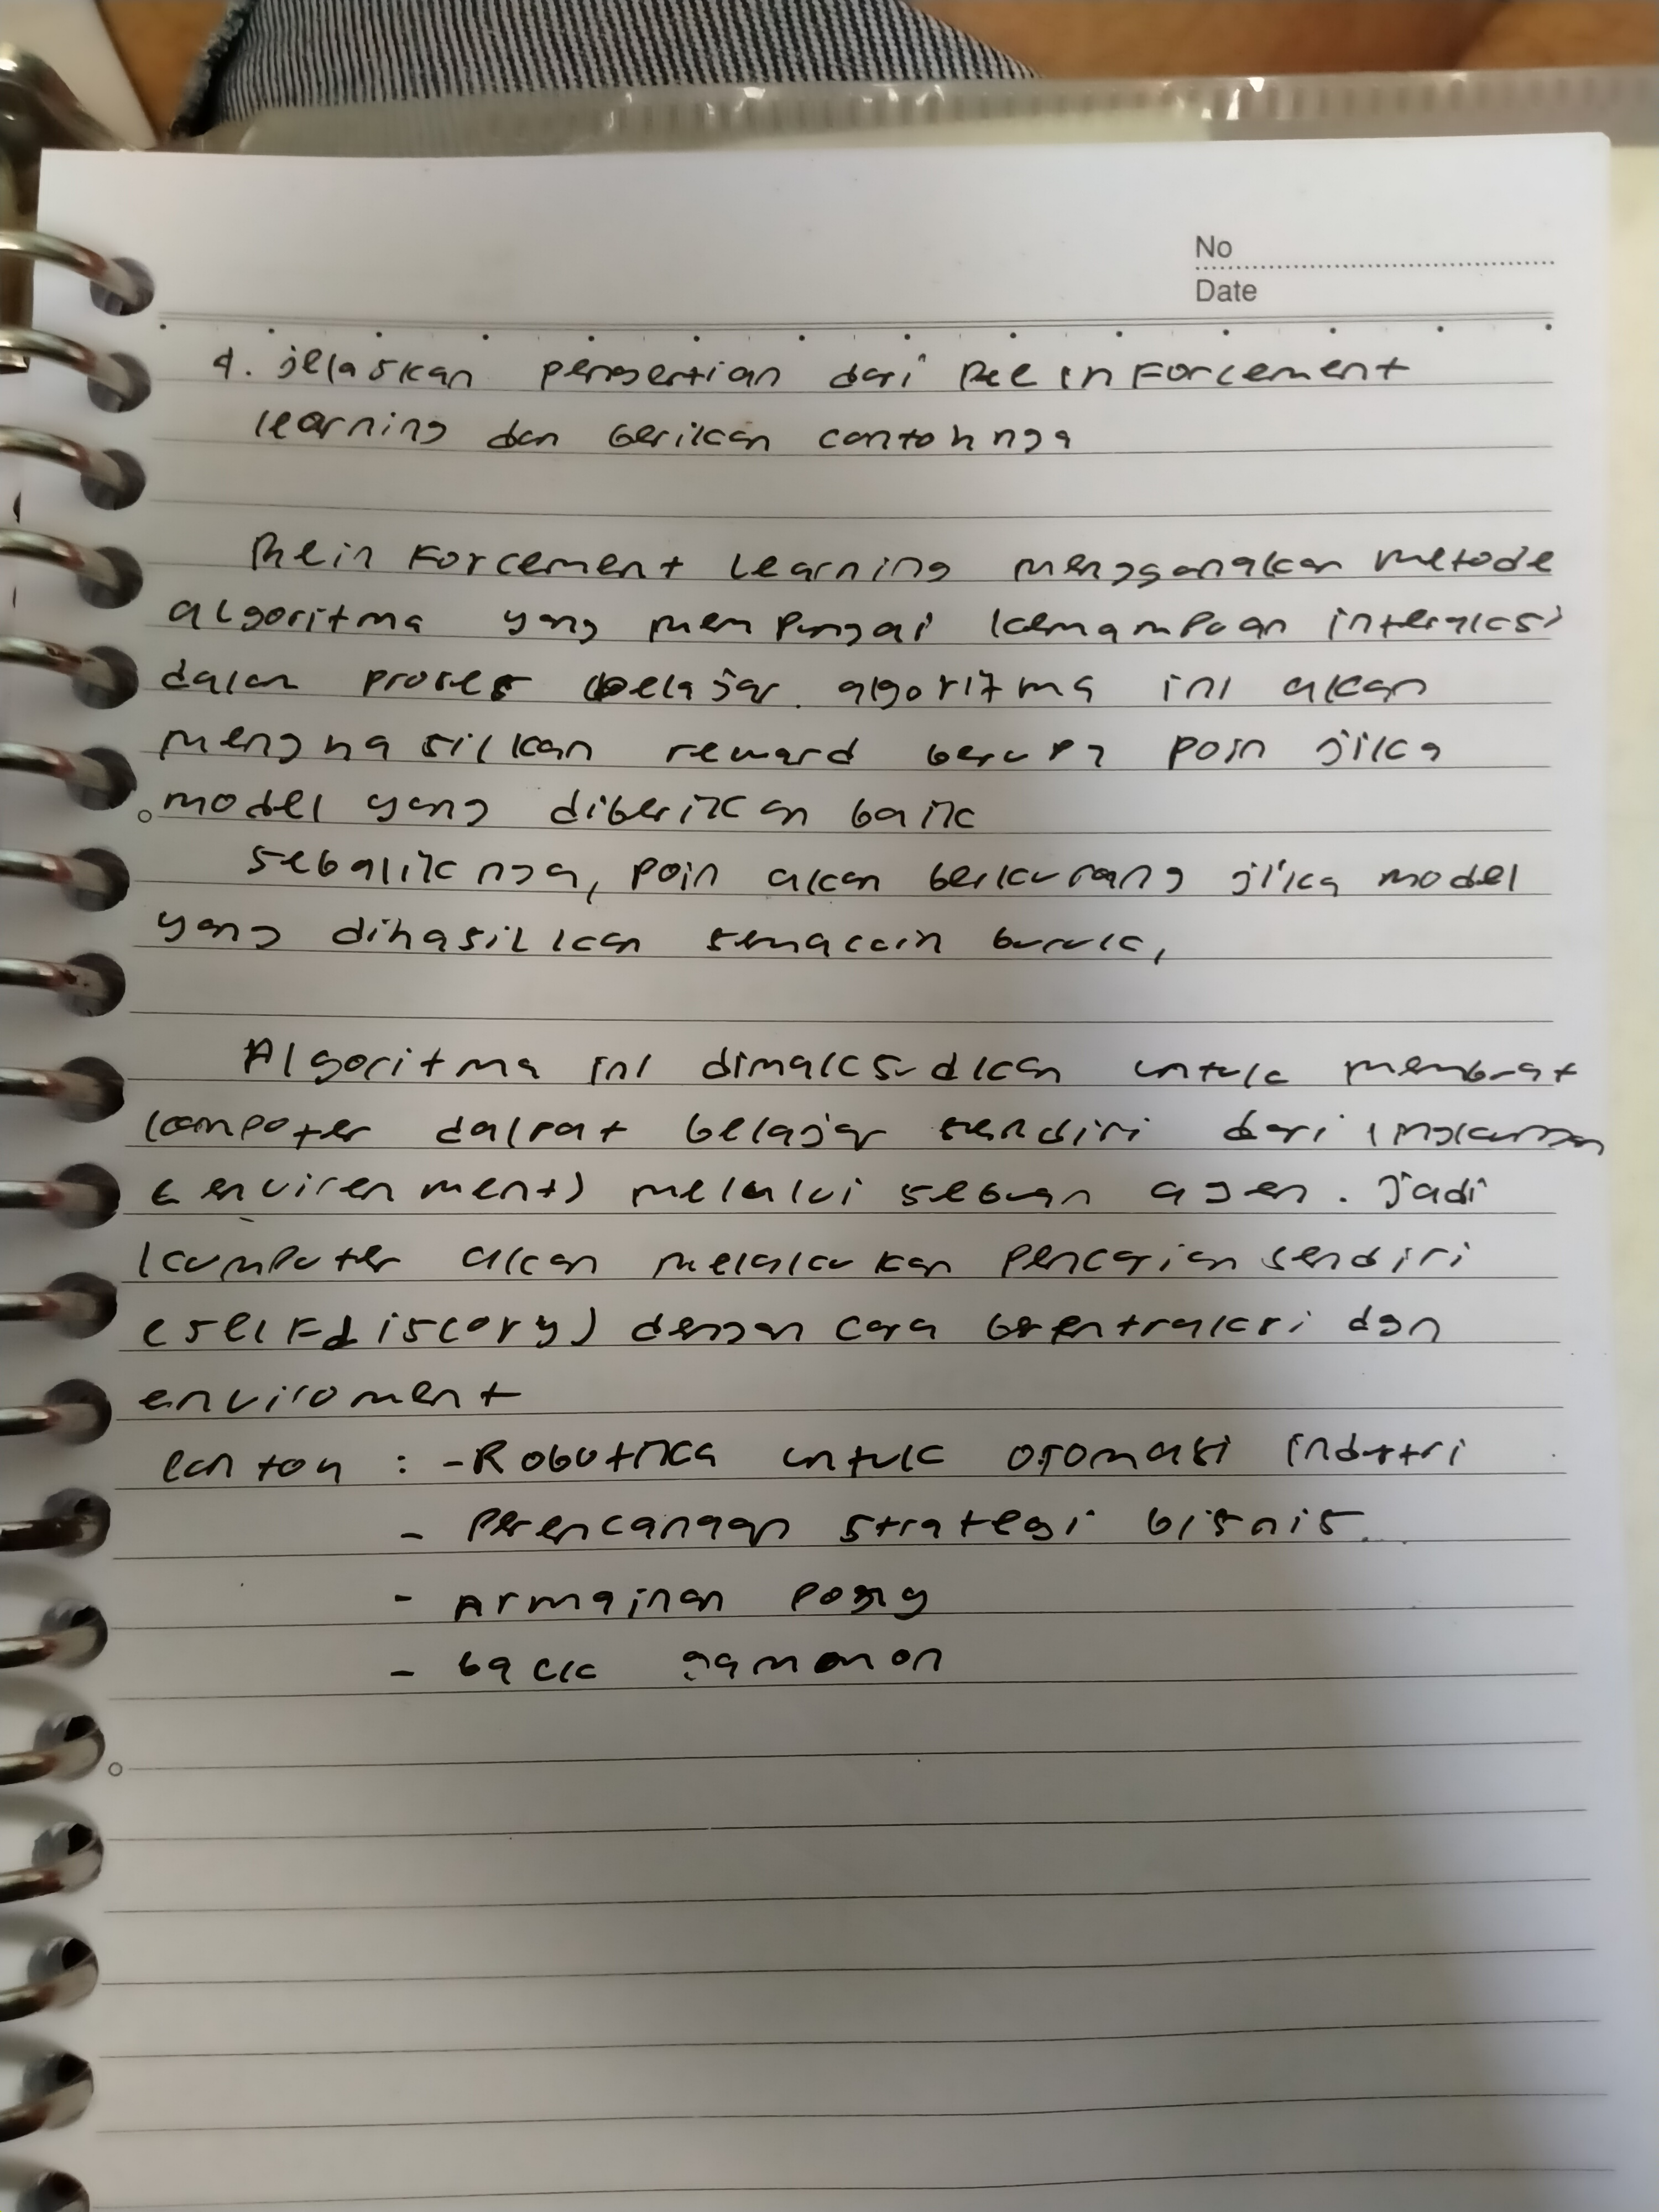 No
Date
4. jelaskan pengertian dari Reeinforcement
learning dan berikan contohnya
Reinforcement Learning menggunakan metode
algoritma yang mempunyai kemampuan interaksi
dalam proses belajar. algoritma ini akan
menghasilkan reward berupa poin jika
model yang diberikan baik
sebaliknya, poin akan berkurang jika model
yang dihasilkan semacain buruk,
Algoritma ini dimaksudkan untuk membuat
komputer dalpat belajar sendiri dari lingkungan
(envirenment) melalui sebuah agen. jadi
kumputer akan melakukan pencarian sendiri
(selfdiscory) dengan cara berentraksi dgn
enviroment
contoh : - Robotika untuk otomasi indutri
- Perencanaan strategi bisnis
- Armainan pong
- back gammon